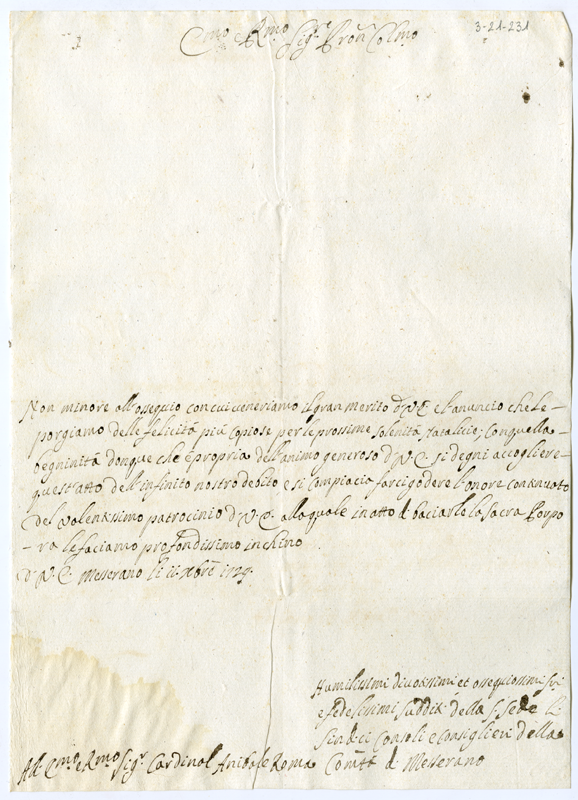 3-21-231
Emo e Rmo Sigr Pron Colmo
Non minore all'ossequio con cui veneriamo il gran merito d'V.E. è l'anuncio che le-
porgiamo delle felicità più copiose per le prossime solenità Natalicie; Con quella-
begninità donque che è propria dell'animo generoso d'V.E. si degni accogliere-
quest'atto dell'infinito nostro debito e si compiacia farci godere l'onore continuato
del valentissimo patrocinio d'V.E. alla quale in atto di baciarle la sacra Porpo
-ra le faciamo profondissimo inchino
d'V.E. Messerano li 11 xbre 1729.
Humilissimi divotissimi et ossequiosissimi Srì
e fedelissimi sudditi della S. Sede Li
Sindici Consoli e Consiglieri della
Comtà di Messerano
All Emo e Rmo Sigr Cardinal Anibale Roma